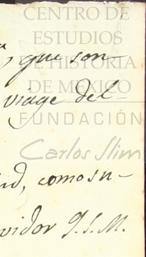 CENTRO DE
ESTUDIOS
DE HISTORIA
DE MÉXICO
FUNDACIÓN
Carlos Slim
, que son
viage del
ud, como su-
vidor J.S.M.